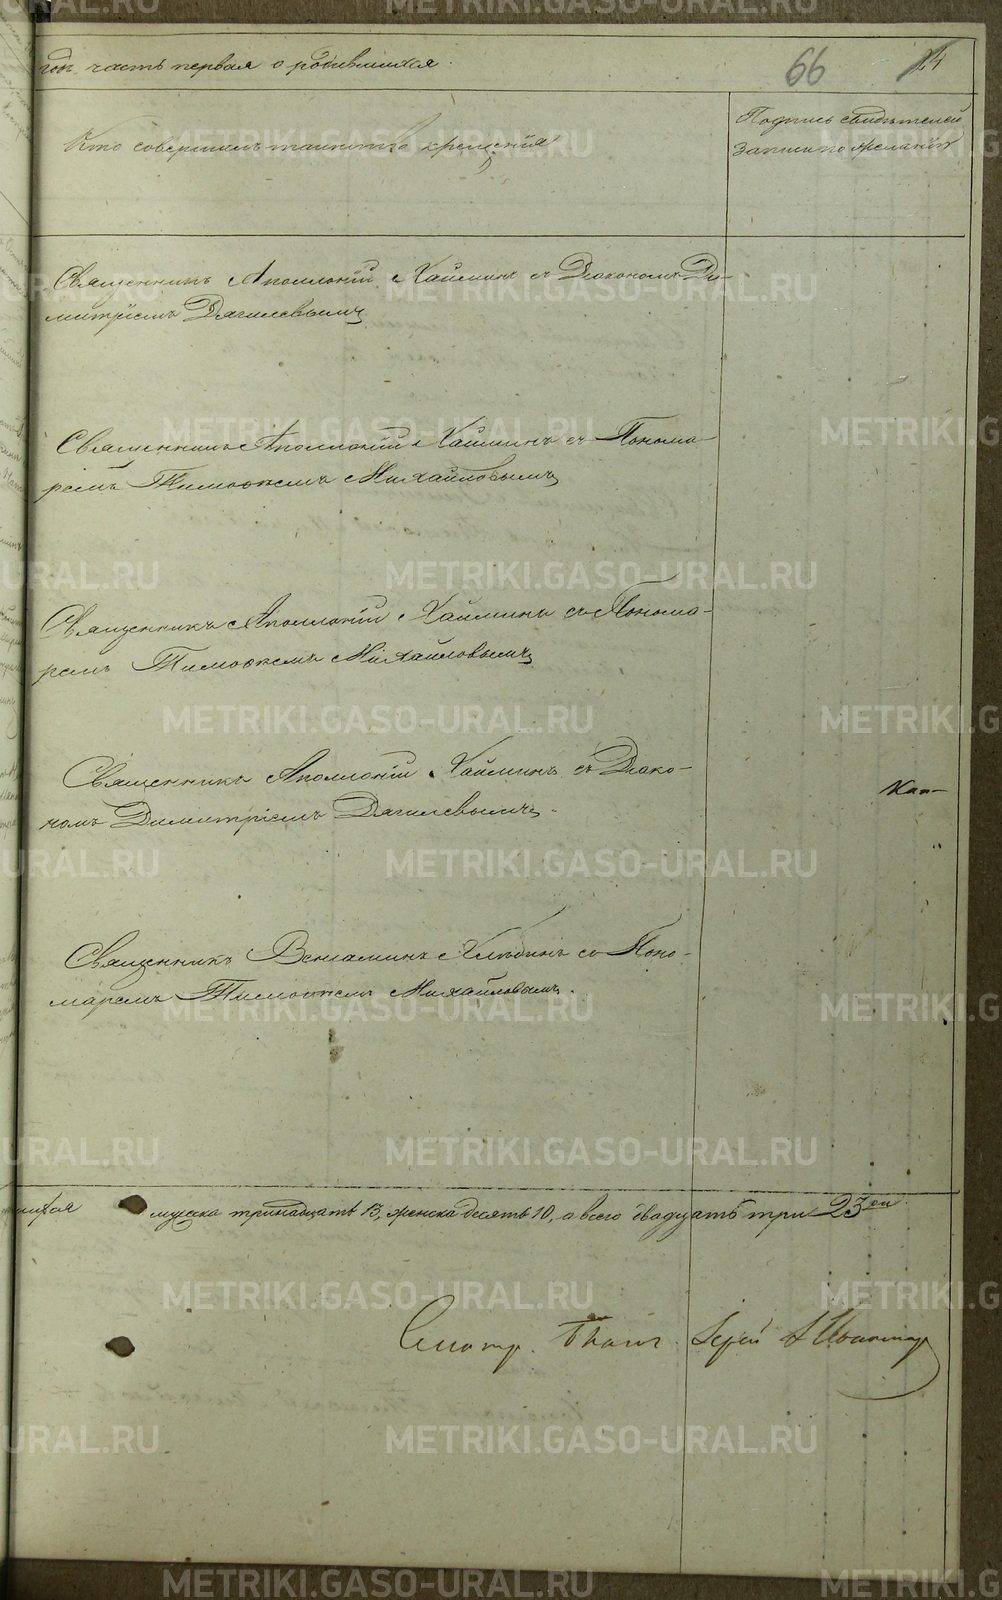 годъ, часть первая о родившихся.
66
24
Кто совершилъ таинство крещенія
Подпись свидѣтелей
записи по желанію
Священникъ Аполлоній Хайминъ съ Діакономъ Ди-
митріемъ Дягилевымъ
Священникъ Аполлоній Хайминъ съ Понома-
ремъ Тимоѳеемъ Михайловымъ
Священникъ Аполлоній Хайминъ съ Понома-
ремъ Тимоѳеемъ Михайловымъ
Священникъ Аполлоній Хайминъ съ Діако-
номъ Димитріемъ Дягилевымъ.
Кап-
Священникъ Веніаминъ Хлѣбинъ съ Поно-
маремъ Тимоѳеемъ Михайловымъ.
мужска тринадцать 13, женска десять 10, а всего двадцать три 23
METRIKI.GASO-URAL.RU